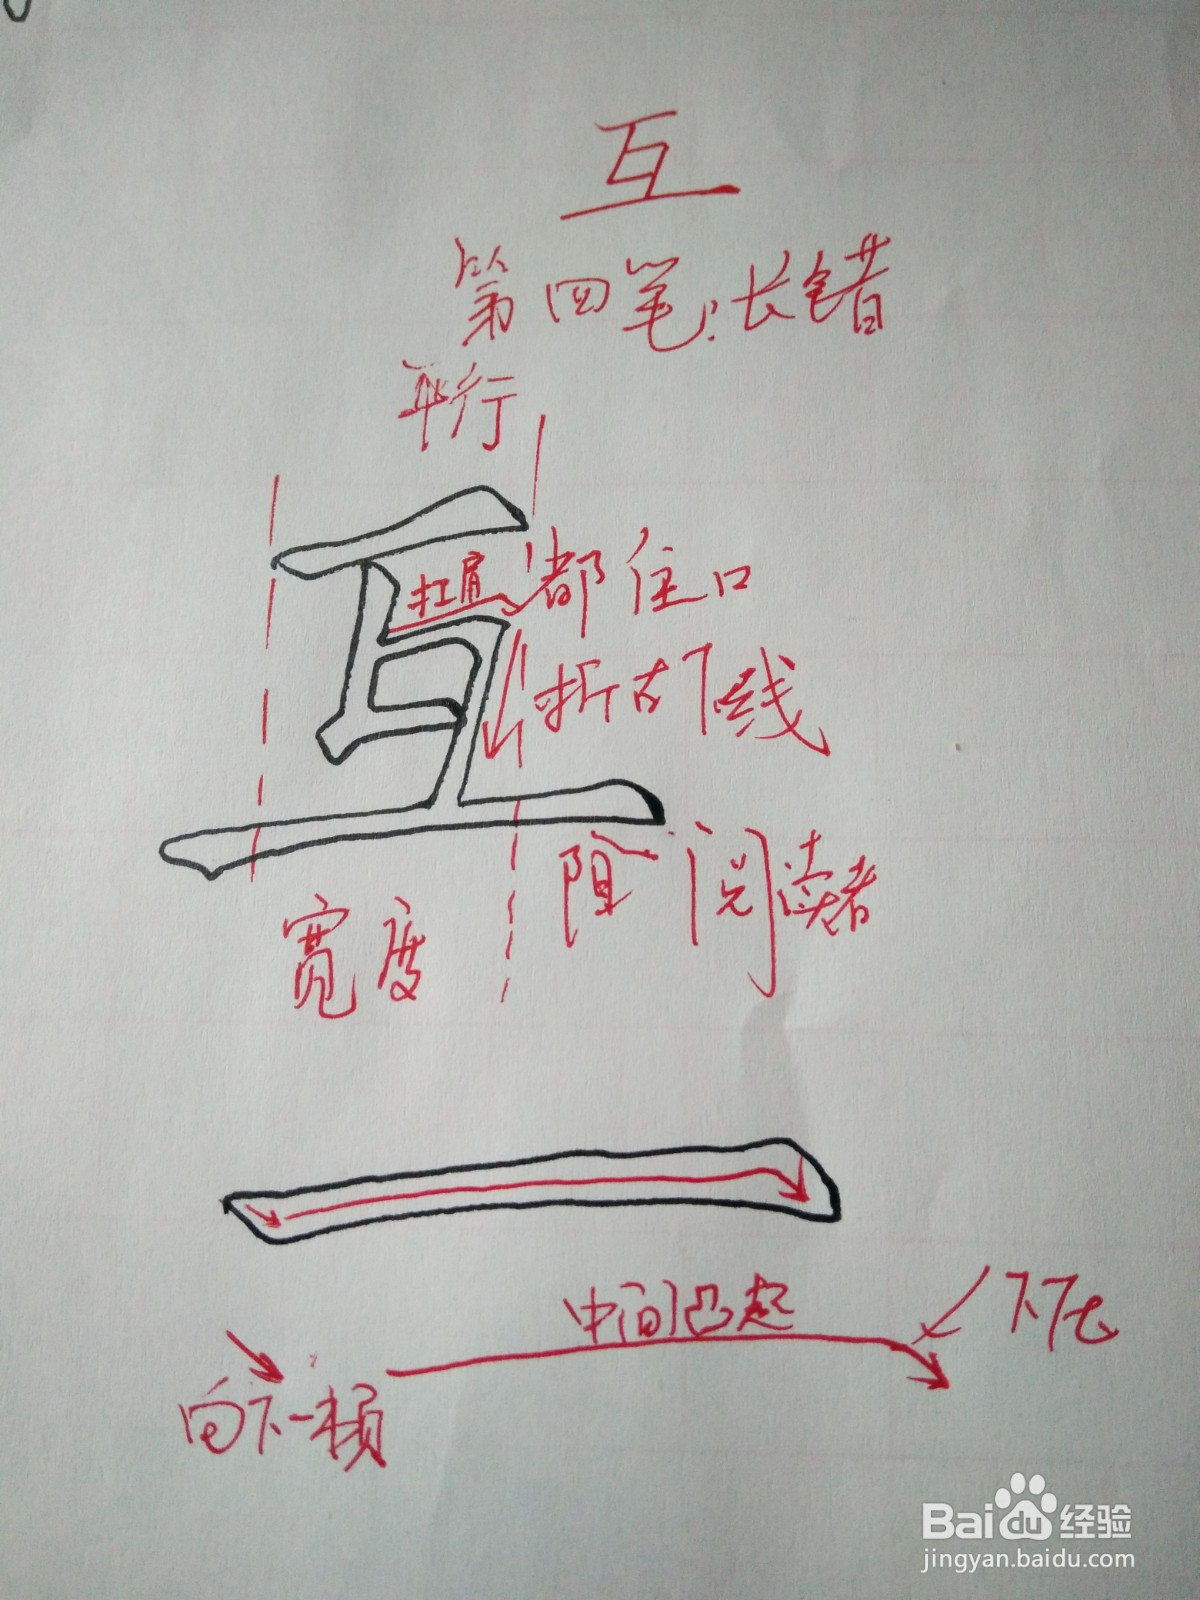 互
第四笔:长错
平行
互
扛肩
都住口
折右下线
阻 阅读者
宽度
中间凸起
向下一
Baidu 经验
jingyan.baidu.com